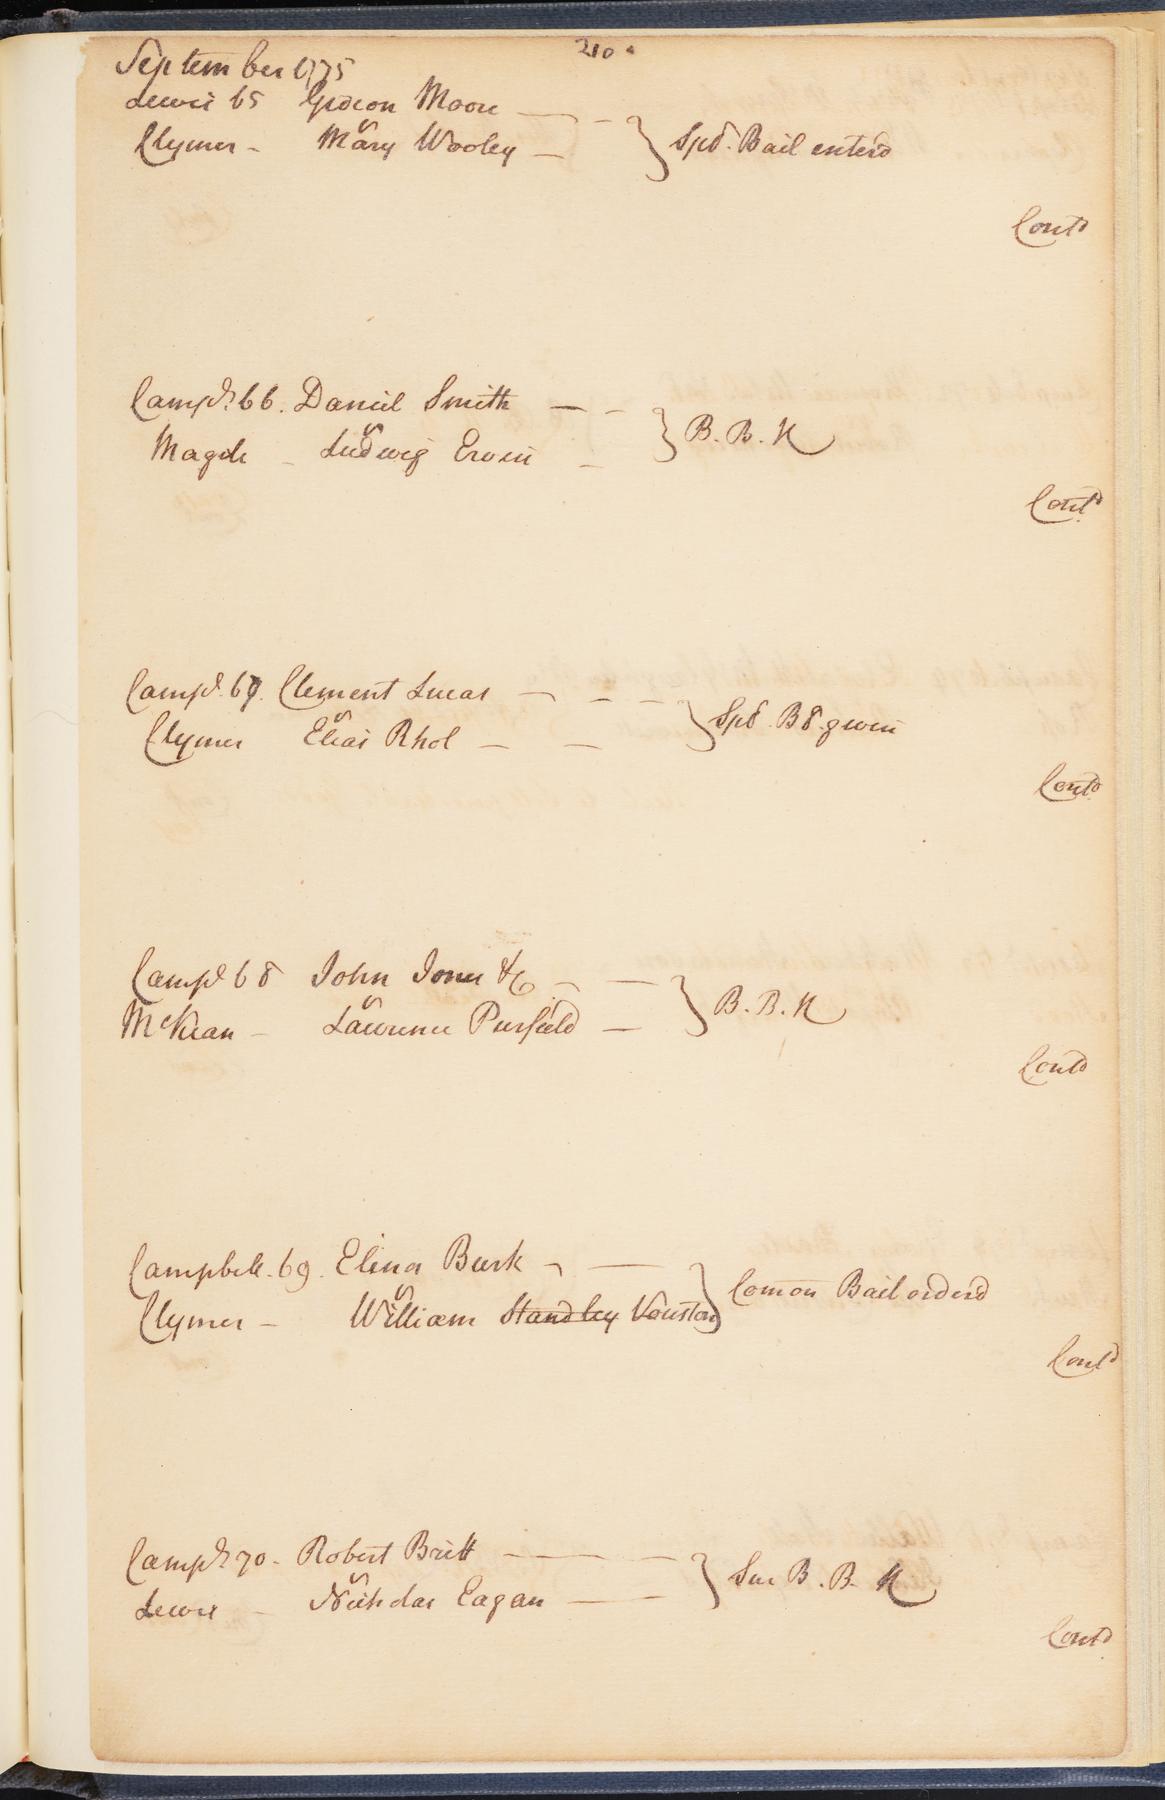 210.
September 1775
Lewis 65 Gideon Moore
vs
Clymer - Mary Wooley } Spl. Bail enterd
Contd
Campl. 66. Daniel Smith
vs
Magde - Ludwig Erwin } B. B. N
Contd
Campl. 67. Clement Lucas
vs
Clymer Elias Rhol } Spl. Bd. given
Contd
Campl 68 John Jones &Co
vs
McKean - Lawrence Purfield } B. B. N
Contd
Campbell. 69. Elina Burk
vs
Clymer - William Standley Vouston } Comon Bail orderd
Contd
Campl. 70 - Robert Britt
vs
Lewis - Nicholas Eagan } Sur B. B. N
Contd